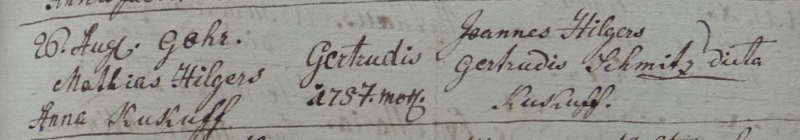 26. Aug. Gohr.
Mathias Hilgers
Anna KuKuff
Gertrudis
1787. mort.
Joannes Hilgers
Gertrudis Schmitz dicta
KuKuff.